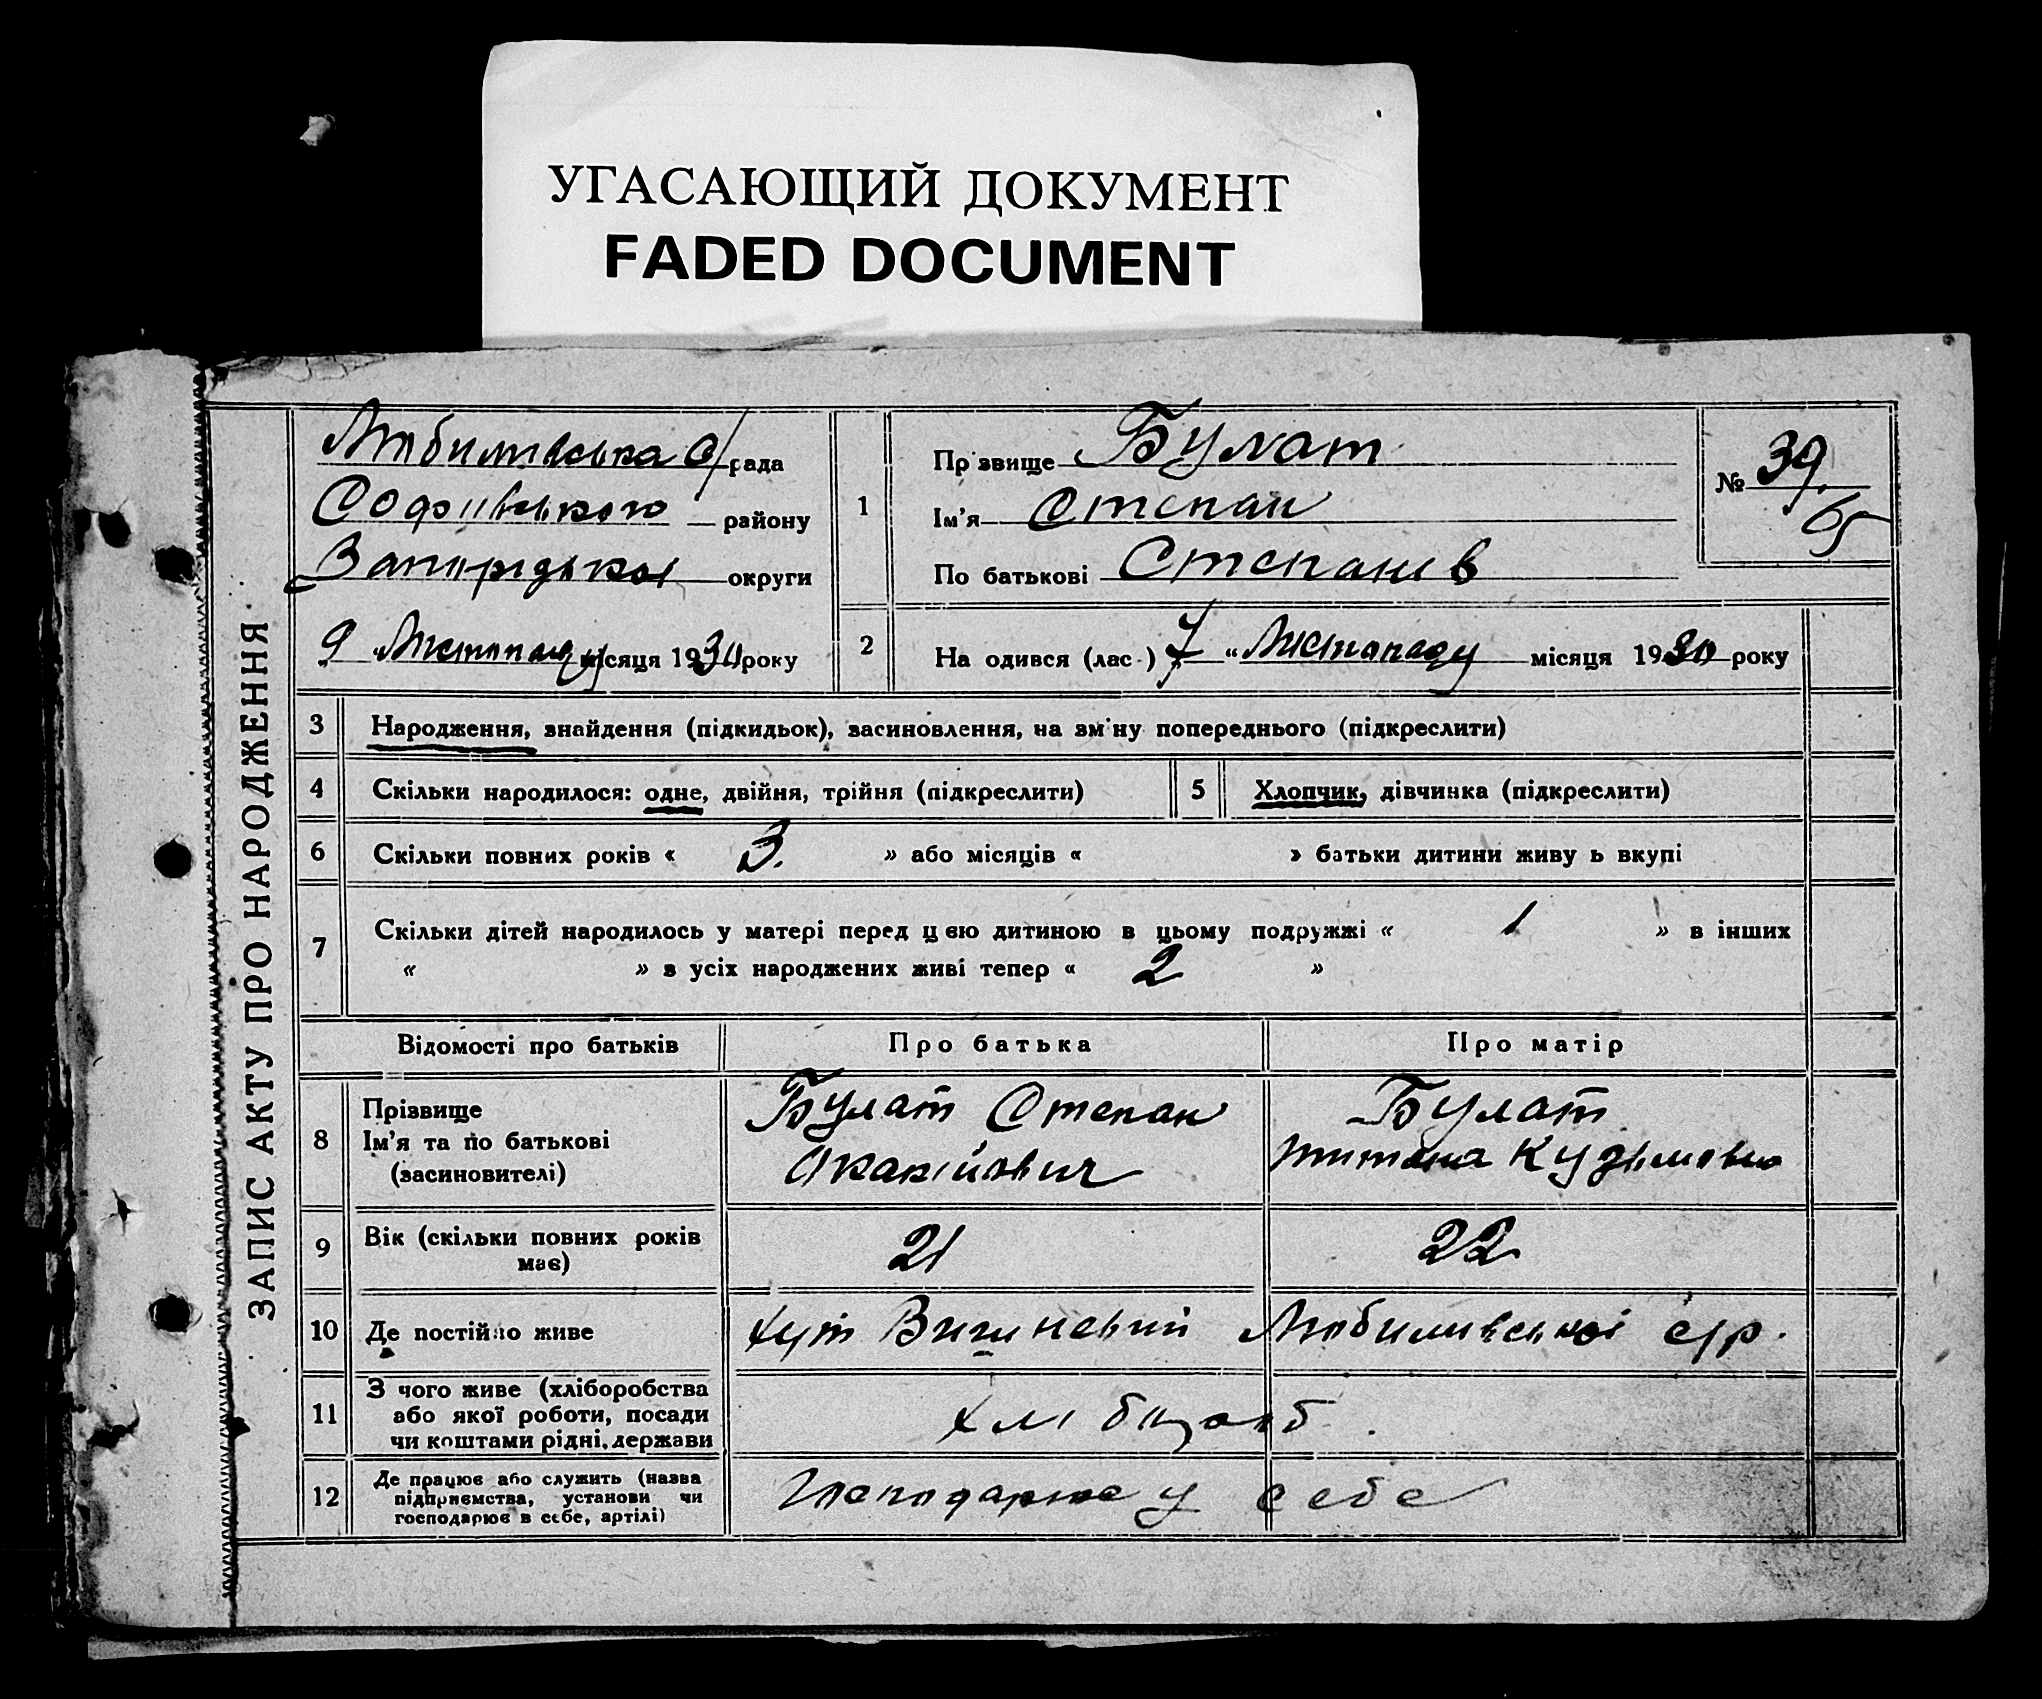 УГАСАЮЩИЙ ДОКУМЕНТ
FADED DOCUMENT
ЗАПИС АКТУ ПРО НАРОДЖЕННЯ
Любимівська с/рада
Софіївського району
Запорізької округи
9 Листопаду місяця 1930 року
1
Прізвище Булат
Ім'я Степан
По батькові Степанів
№ 39
65
2
На одився (лас ) „7 “ Листопаду місяця 1930 року
3 Народження, знайдення (підкидьок), засиновлення, на зміну попереднього (підкреслити)
4 Скільки народилося: одне, двійня, трійня (підкреслити)
5 Хлопчик, дівчинка (підкреслити)
6 Скільки повних років « 3. » або місяців « » батьки дитини живу ь вкупі
7 Скільки дітей народилось у матері перед цією дитиною в цьому подружжі « 1 » в інших
« » в усіх народжених живі тепер « 2 »
Відомості про батьків Про батька Про матір
8
Прізвище
Ім'я та по батькові
(засиновителі)
Булат Степан
Акакійович
Булат
Титяна Кудьмовна
9 Вік (скільки повних років
має)
21
22
10 Де постійно живе хут Вишневий Любимивської с/р.
11 З чого живе (хліборобства
або якої роботи, посади
чи коштами рідні, держави
хлібороб.
12 Де працює або служить (назва
підприємства, установи чи
господарює в себе, артілі)
Господарює у себе